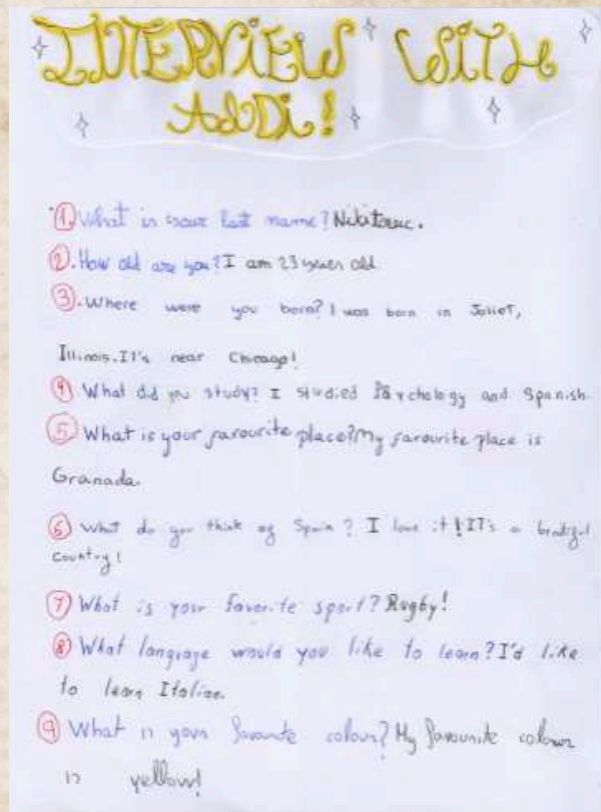 INTERVIEW WITH
ADDI!
1. What is your last name? Nikitovic.
2. How old are you? I am 23 years old
3. Where were you born? I was born in Joliet,
Illinois. It's near Chicago!
4 What did you study? I studied Psychology and Spanish
5 What is your favourite place? My favourite place is
Granada.
6 What do you think of Spain? I love it! IT's a
country!
7 What is your favorite sport? Rugby!
8 What language would you like to learn? I'd like
to learn Italian.
9 What is your favourite colour? My favourite colour
is yellow!